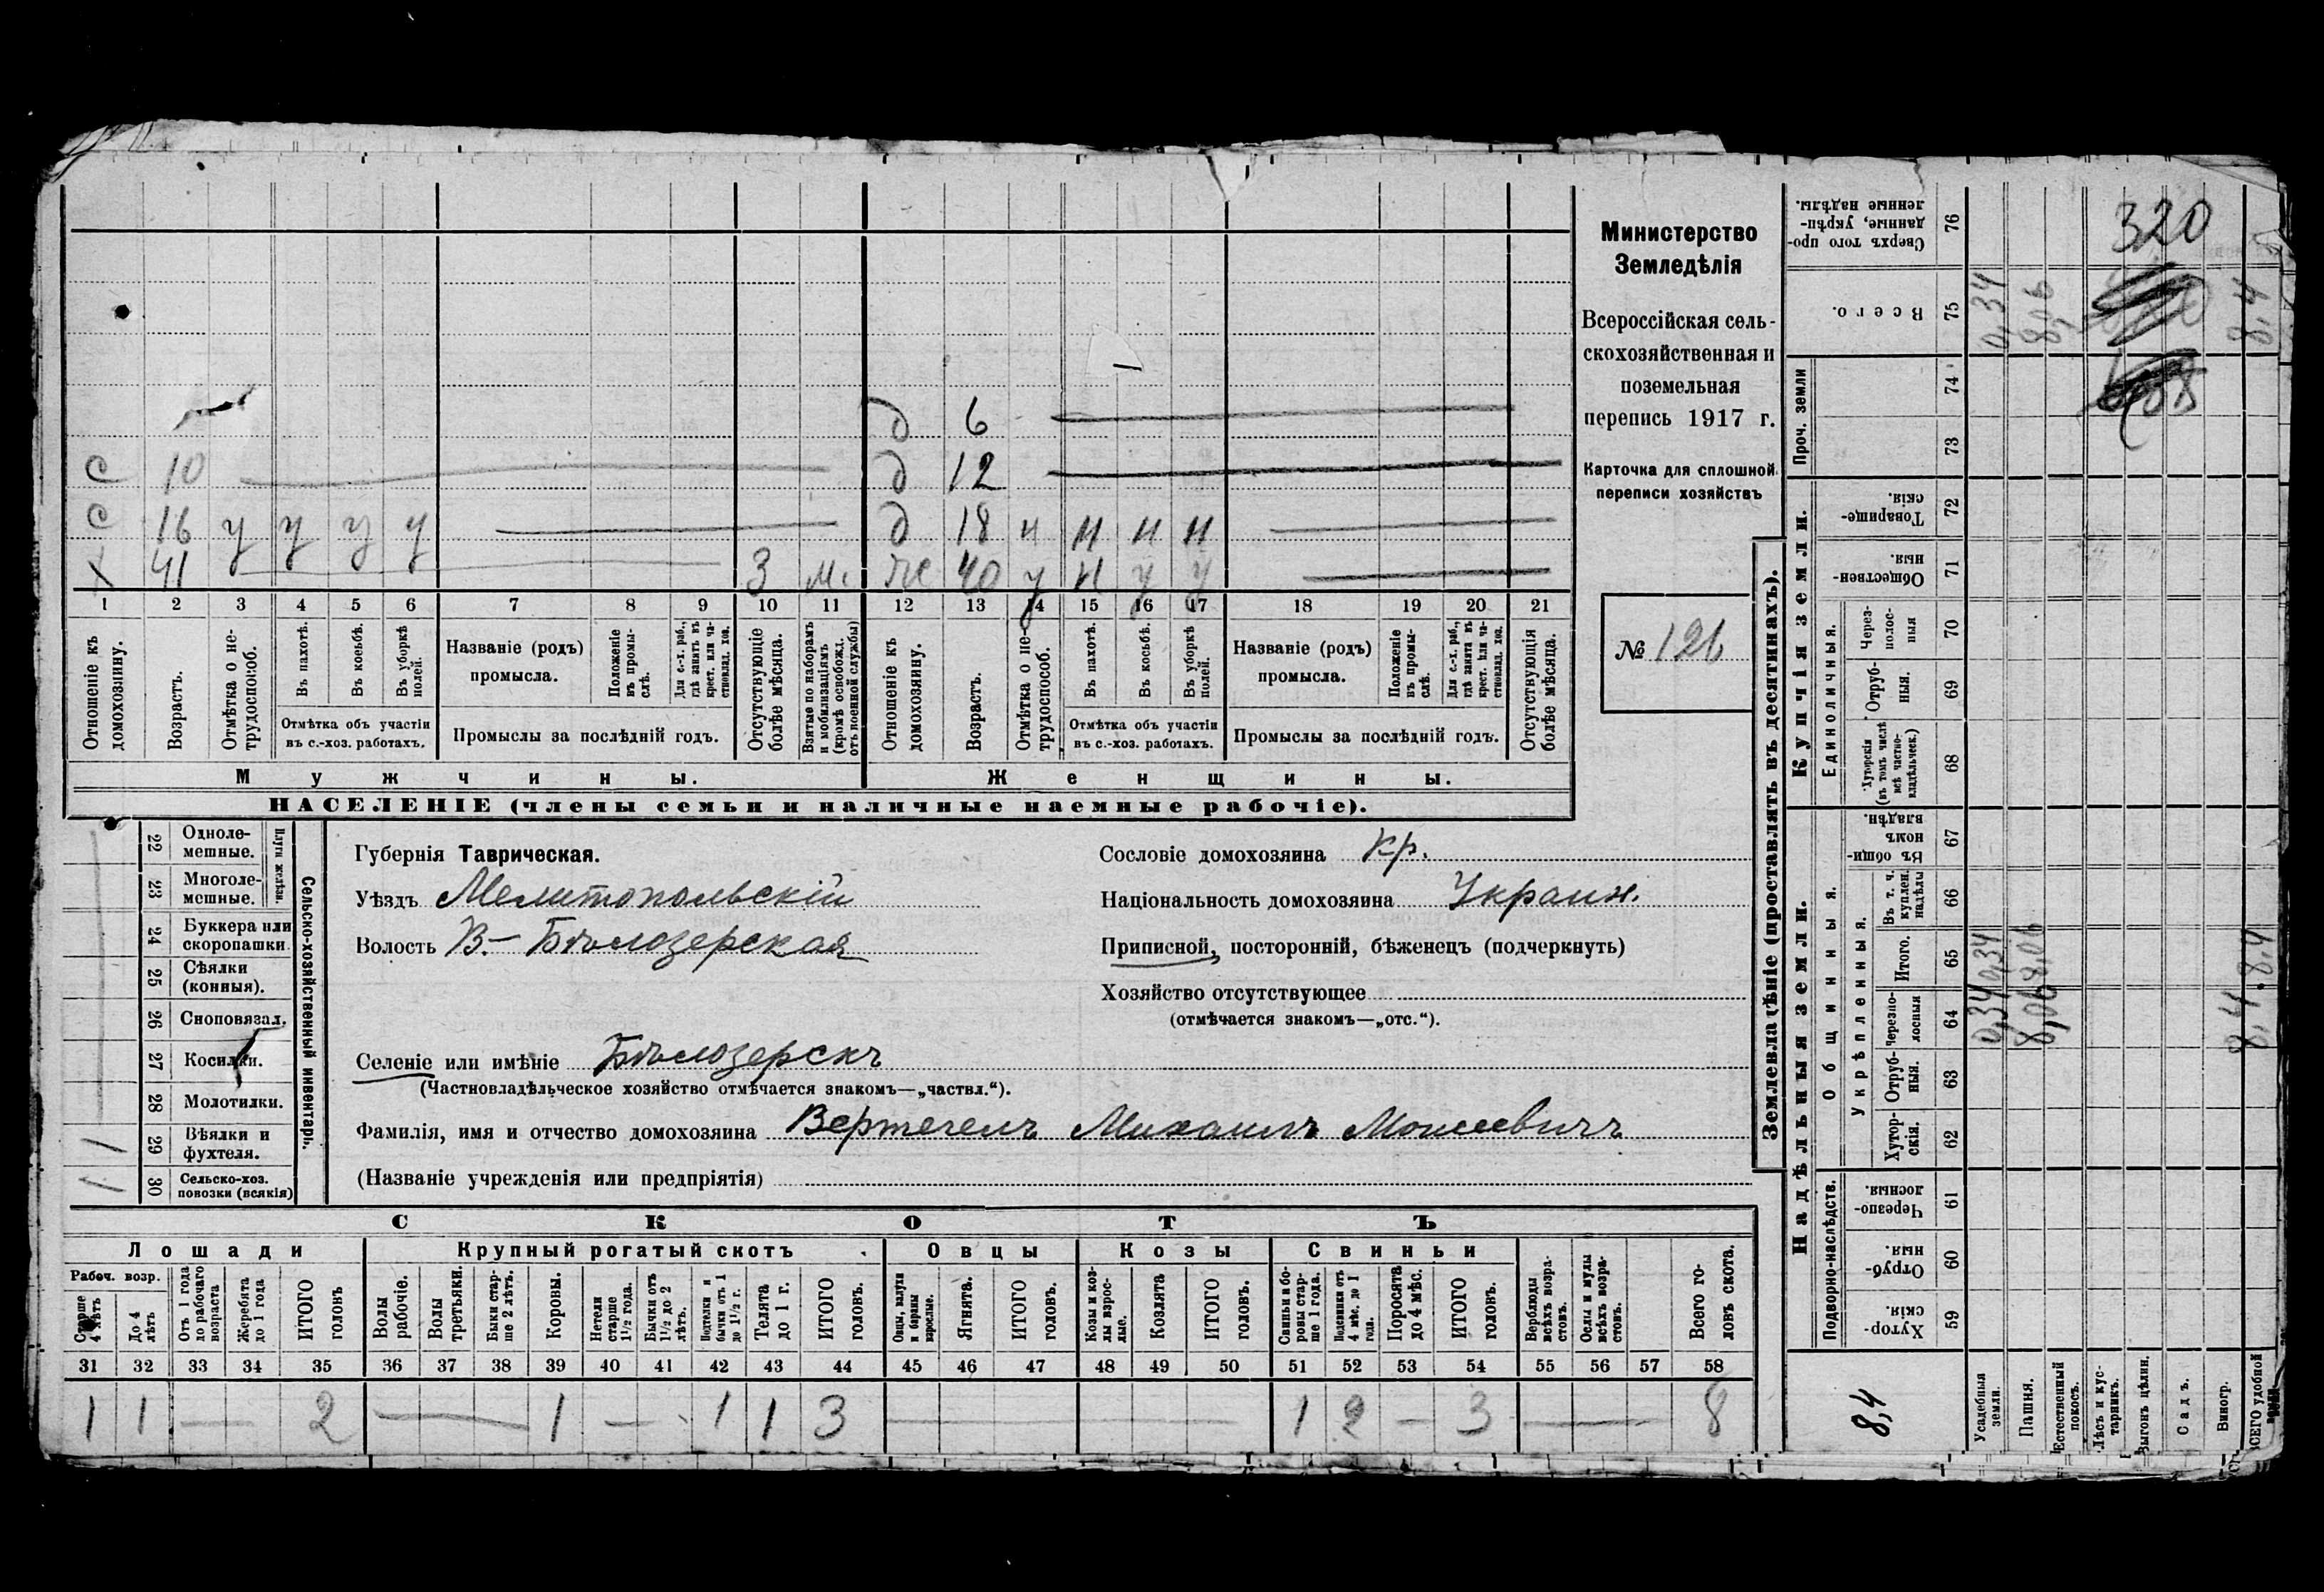 Министерство
Земледѣлія
Всероссійская сель-
скохозяйственная и
поземельная
перепись 1917 г.
Карточка для сплошной
переписи хозяйствъ
№ 126
д 6
с 10 д 12
с 16 у у у у д 18 н н н н
х 41 3 м. ж 40 у н у у
1 2 3 4 5 6 7 8 9 10 11 12 13 14 15 16 17 18 19 20 21
Отношеніе къ домохозяину.
Возрастъ.
Отмѣтка о не-трудоспособ.
Въ пахотѣ.
Въ косьбѣ.
Въ уборкѣ полей.
Отмѣтка объ участіи
въ с.-хоз. работахъ.
Названіе (родъ)
промысла.
Положеніе въ промы-слѣ.
Для с.-х. раб., гдѣ занятъ въ крест. или ча-стновлад. хоз.
Промыслы за послѣдній годъ.
Отсутствующіе болѣе мѣсяца.
Взятые по наборамъ и мобилизаціямъ (кромѣ освобожд. отъ военной службы)
Отношеніе къ домохозяину.
Возрастъ.
Отмѣтка о не-трудоспособ.
Въ пахотѣ.
Въ косьбѣ.
Въ уборкѣ полей.
Отмѣтка объ участіи
въ с.-хоз. работахъ.
Названіе (родъ)
промысла.
Положеніе въ промы-слѣ.
Для с.-х. раб., гдѣ занята въ крест. или ча-стновлад. хоз.
Промыслы за послѣдній годъ.
Отсутствующія болѣе мѣсяца.
Мужчины. Женщины.
НАСЕЛЕНІЕ (члены семьи и наличные наемные рабочіе).
Сельско-хозяйственный инвентарь.
Плуги желѣзн.
22 Одноле-мешные.
23 Многоле-мешные.
24 Буккера или скоропашки.
25 Сѣялки (конныя).
26 Сноповязал.
27 Косилки.
28 Молотилки.
29 Вѣялки и фухтеля. 1
30 Сельско-хоз. повозки (всякія) 1
Губернія Таврическая.
Уѣздъ Мелитопольскій
Волость В-Бѣлозерская
Селеніе или имѣніе Бѣлозерскъ
(Частновладѣльческое хозяйство отмѣчается знакомъ—„частвл.“).
Фамилія, имя и отчество домохозяина Вертегелъ Михаилъ Моисеевичъ
(Названіе учрежденія или предпріятія)
Сословіе домохозяина кр.
Національность домохозяина Украин.
Приписной, посторонній, бѣженецъ (подчеркнуть)
Хозяйство отсутствующее
(отмѣчается знакомъ—„отс.“).
СКОТЪ
Лошади Крупный рогатый скотъ Овцы Козы Свиньи
Рабоч. возр.
Старше 4 лѣтъ
До 4 лѣтъ
Отъ 1 года до рабочаго возраста
Жеребята до 1 года
ИТОГО головъ
Волы рабочіе.
Волы третьяки.
Быки стар-ше 2 лѣтъ.
Коровы.
Нетели старше 1½ года.
Бычки отъ 1½ до 2 лѣтъ.
Подтелки и бычки отъ 1 до 1½ г.
Телята до 1 г.
ИТОГО головъ.
Овцы, валухи и бараны взрослые.
Ягнята.
ИТОГО головъ.
Козы и коз-лы взрос-лые.
Козлята
ИТОГО головъ.
Свиньи и бо-ровы стар-ше 1 года.
Подсвинки отъ 4 мѣс. до 1 года.
Поросята до 4 мѣс.
ИТОГО головъ.
Верблюды всѣхъ возра-стовъ.
Ослы и мулы всѣхъ возра-стовъ.
Всего го-ловъ скота.
31 32 33 34 35 36 37 38 39 40 41 42 43 44 45 46 47 48 49 50 51 52 53 54 55 56 57 58
1 1 — 2 — 1 — 1 1 3 — 1 2 — 3 — 8
Землевладѣніе (проставлять въ десятинахъ).
Надѣльныя земли.
Купчія земли.
Проч. земли
Подворно-наслѣдств.
Общинныя.
Укрѣпленныя.
Единоличныя.
Хутор-скія. 59
Отруб-ныя. 60
Черезпо-лосныя. 61
Хутор-скія. 62
Отруб-ныя. 63
Черезпо-лосныя 64
Итого. 65
Въ т. ч. куплен. надѣлы 66
Въ общин-номъ владѣн. 67
Хуторскія (въ томъ числѣ всѣ частно-владѣльческ.) 68
Отруб-ныя. 69
Через-полос-ныя 70
Обществен-ныя. 71
Товарище-скія. 72
73
74
Всего. 75
Сверхъ того про-данные, укрѣп-ленные надѣлы. 76
8,4
Усадебныя земли. 0,34 0,34 0,34
Пашня. 8,06 8,06 8,06
Естественный покосъ.
Лѣсъ и кус-тарникъ.
Выгонъ цѣлин.
Садъ.
Виногр.
ВСЕГО удобной 8,4 8,4 8,4
320